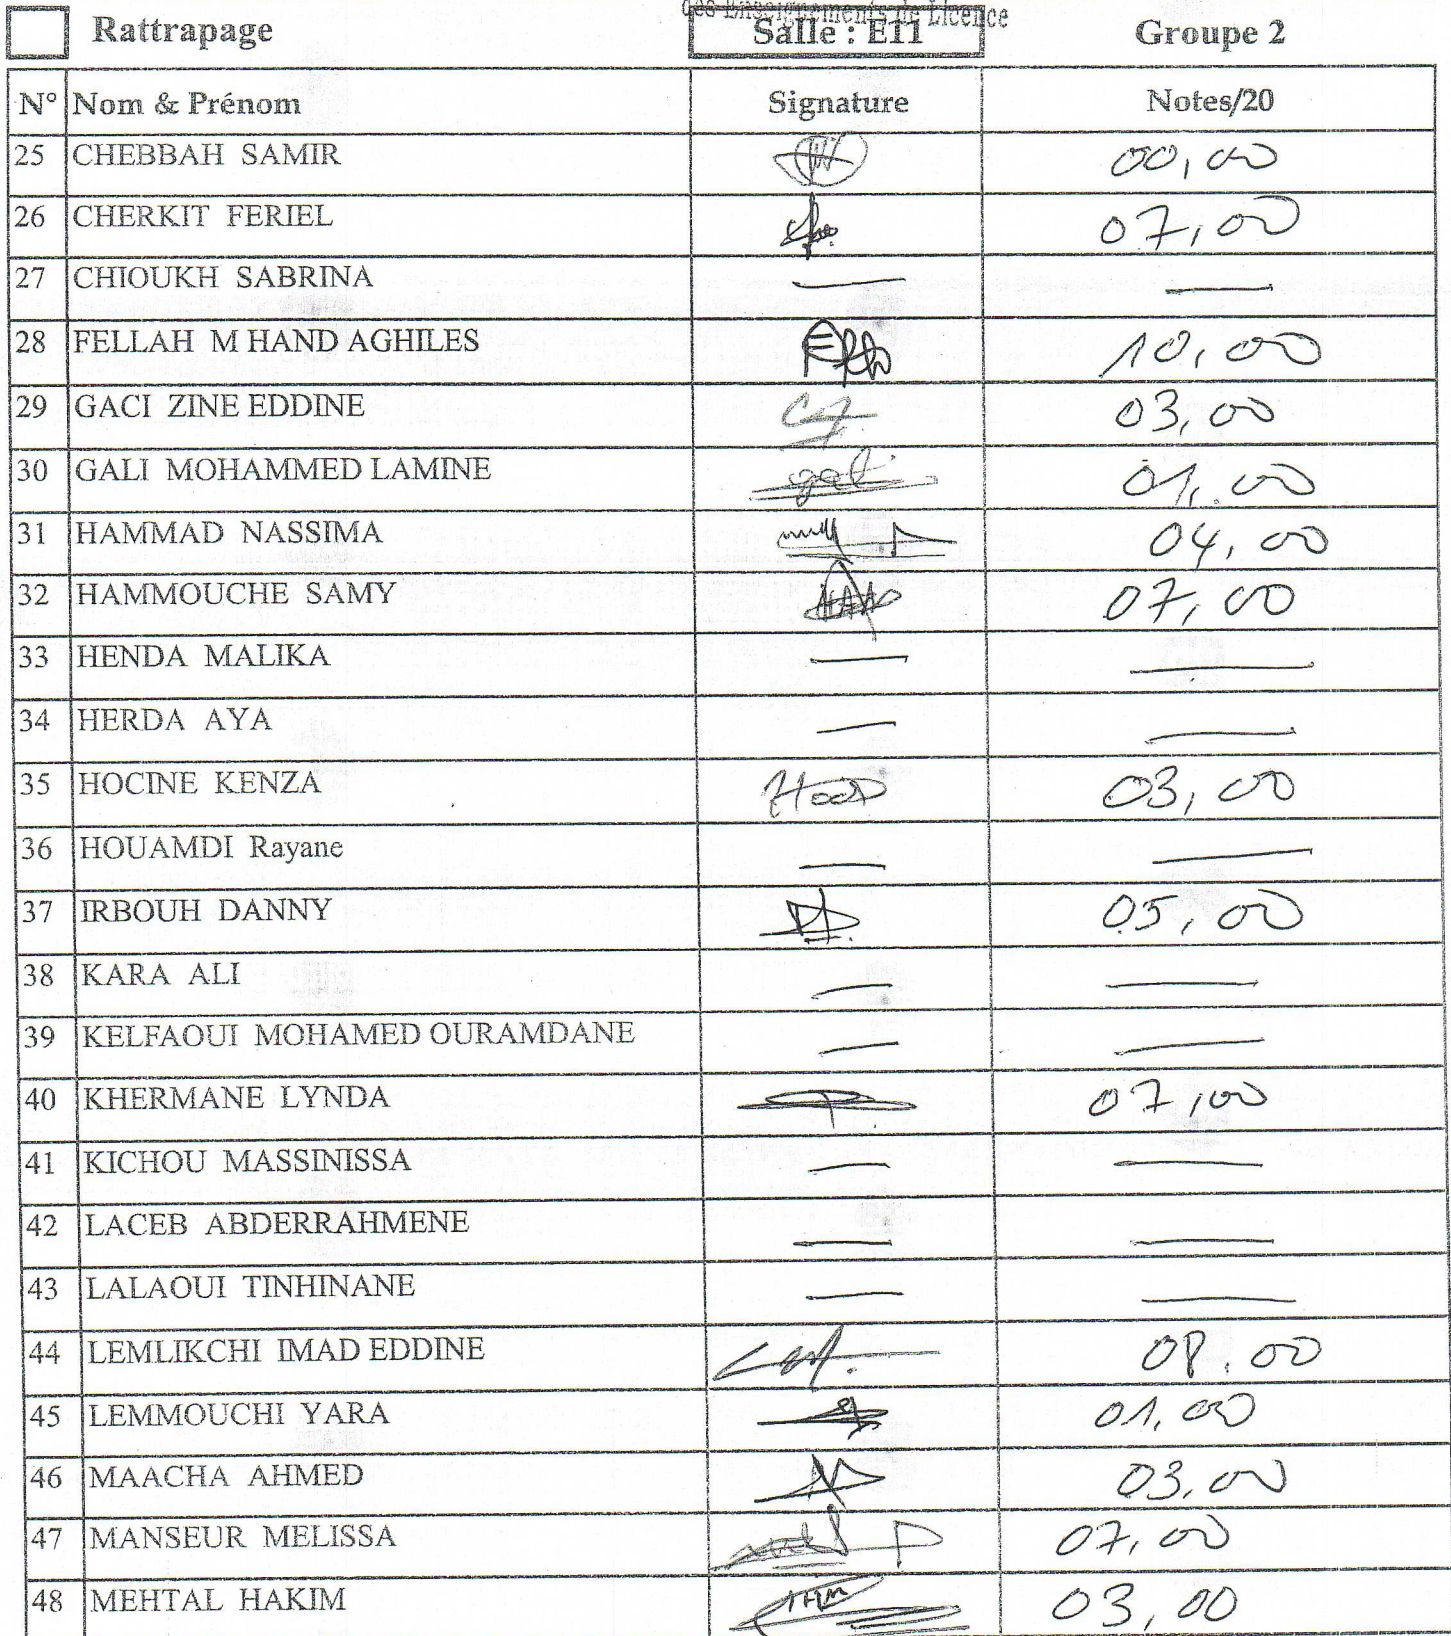 des Enseignements de Licence
Rattrapage Salle : E11 Groupe 2
N° Nom & Prénom Signature Notes/20
25 CHEBBAH SAMIR 00,00
26 CHERKIT FERIEL 07,00
27 CHIOUKH SABRINA — —
28 FELLAH M HAND AGHILES 10,00
29 GACI ZINE EDDINE 03,00
30 GALI MOHAMMED LAMINE 01,00
31 HAMMAD NASSIMA 04,00
32 HAMMOUCHE SAMY 07,00
33 HENDA MALIKA — —
34 HERDA AYA — —
35 HOCINE KENZA 03,00
36 HOUAMDI Rayane — —
37 IRBOUH DANNY 05,00
38 KARA ALI — —
39 KELFAOUI MOHAMED OURAMDANE — —
40 KHERMANE LYNDA 07,00
41 KICHOU MASSINISSA — —
42 LACEB ABDERRAHMENE — —
43 LALAOUI TINHINANE — —
44 LEMLIKCHI IMAD EDDINE 08,00
45 LEMMOUCHI YARA 01,00
46 MAACHA AHMED 03,00
47 MANSEUR MELISSA 07,00
48 MEHTAL HAKIM 03,00